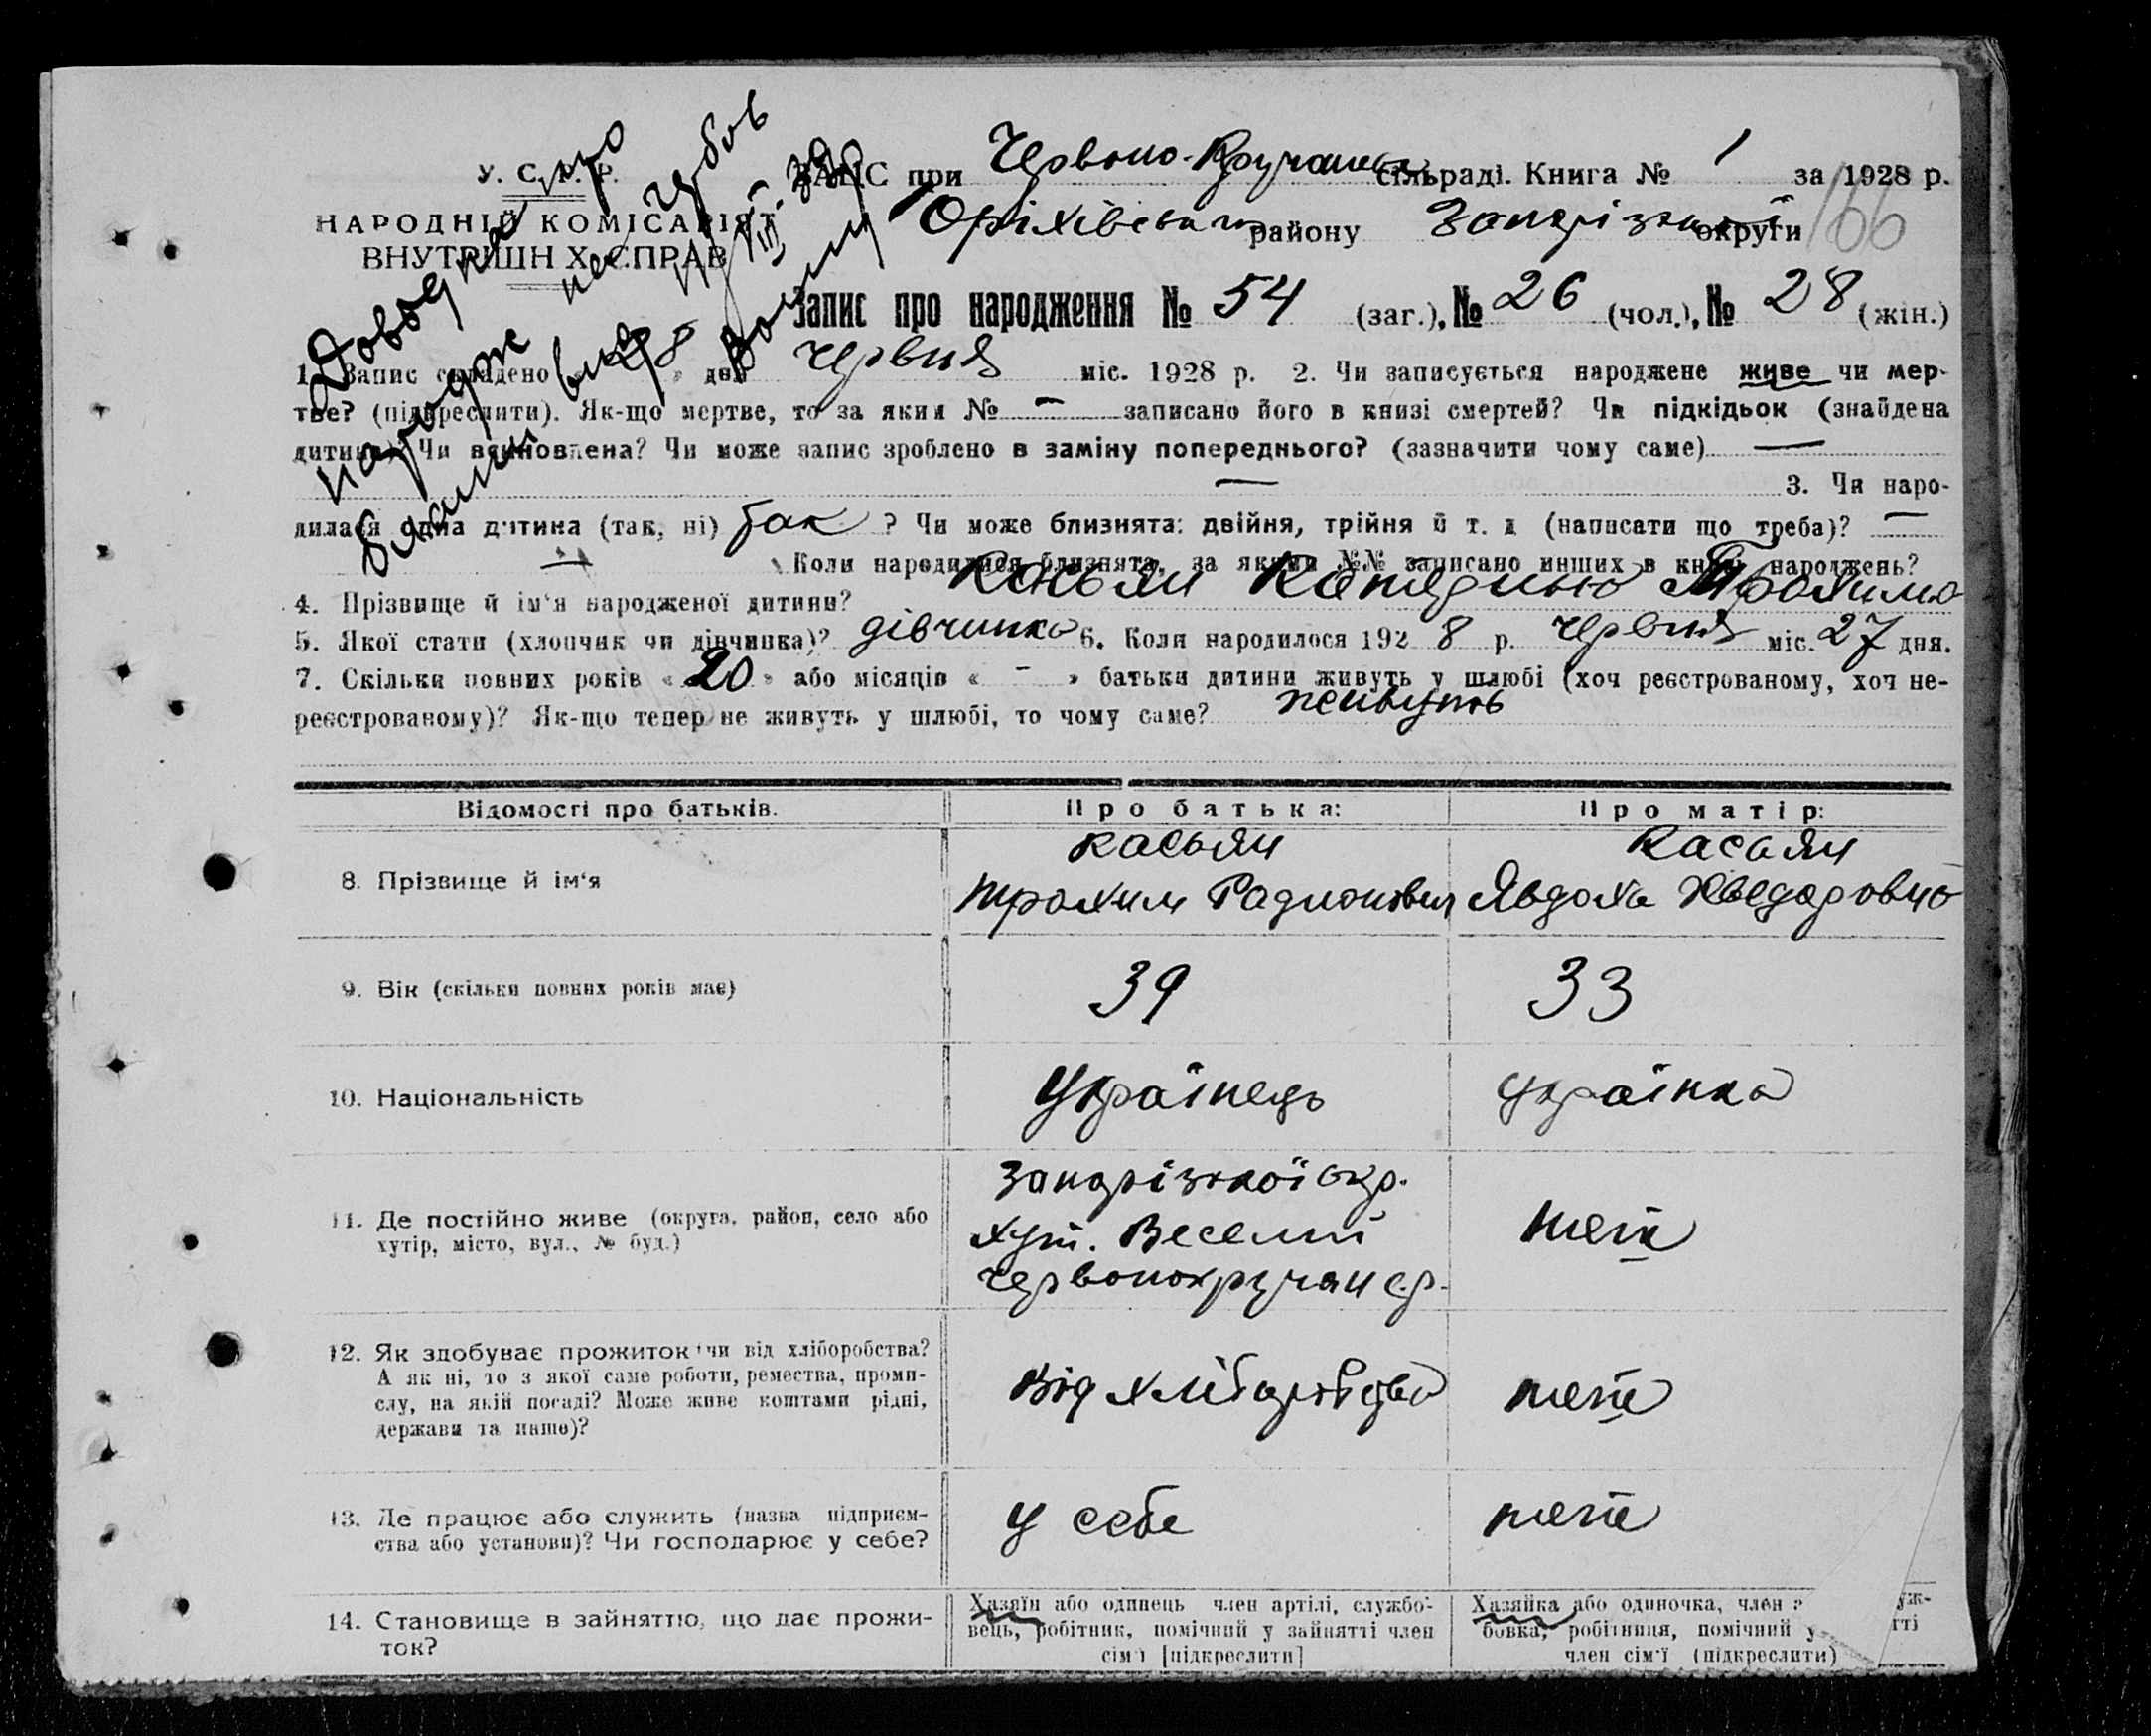 У. С. Р. Р.
НАРОДНІЙ КОМІСАРІЯТ
ВНУТРІШН Х СПРАВ
ЗАПС при Червоно-Кручансь сільраді. Книга № 1 за 1928 р.
Оріхівськ району Запорізьк округи
166
Запис про народження № 54 (заг.), № 26 (чол.), № 28 (жін.)
1. Запис складено « 28 » дня червня міс. 1928 р. 2. Чи записується народжене живе чи мер-
тве? (підкреслити). Як-що мертве, то за яким № — записано його в книзі смертей? Чи підкідьок (знайдена
дитина) Чи всиновлена? Чи може запис зроблено в заміну попереднього? (зазначити чому саме) —
— 3. Чи наро-
дилася одна дитина (так, ні) так ? Чи може близнята: двійня, трійня й т. д (написати що треба)? —
— Коли народилися близнята, за якими №№ записано инших в книзі народжень?
4. Прізвище й ім'я народженої дитини? Касьян Катерина Трохимо
5. Якої стати (хлопчик чи дівчинка)? дівчинка 6. Коли народилося 192 8 р. червня міс. 27 дня.
7. Скільки повних років « 20 » або місяців « - » батьки дитини живуть у шлюбі (хоч реєстрованому, хоч не-
реєстрованому)? Як-що тепер не живуть у шлюбі, то чому саме? живуть
Відомості про батьків. Про батька: Про матір:
8. Прізвище й ім'я
Касьян
Трохим Радионович
Касьян
Явдоха Хведоровна
9. Вік (скільки повних років має) 39 33
10. Національність Українець українка
11. Де постійно живе (округа, район, село або
хутір, місто, вул., № буд.)
Запорізької окр.
хут. Веселий
Червонокручан с.р.
теж
12. Як здобуває прожиток чи від хліборобства?
А як ні, то з якої саме роботи, ремества, проми-
слу, на якій посаді? Може живе коштами рідні,
держави та инше)?
Від хліборобства
теж
13. Де працює або служить (назва підприєм-
ства або установи)? Чи господарює у себе?
у себе
теж
14. Становище в зайняттю, що дає прожи-
ток?
Хазяїн або одинець член артілі, службо-
вець, робітник, помічний у зайнятті член
сім'ї [підкреслити]
Хазяйка або одиночка, член
бовка, робітниця, помічний у
член сім'ї (підкреслити)